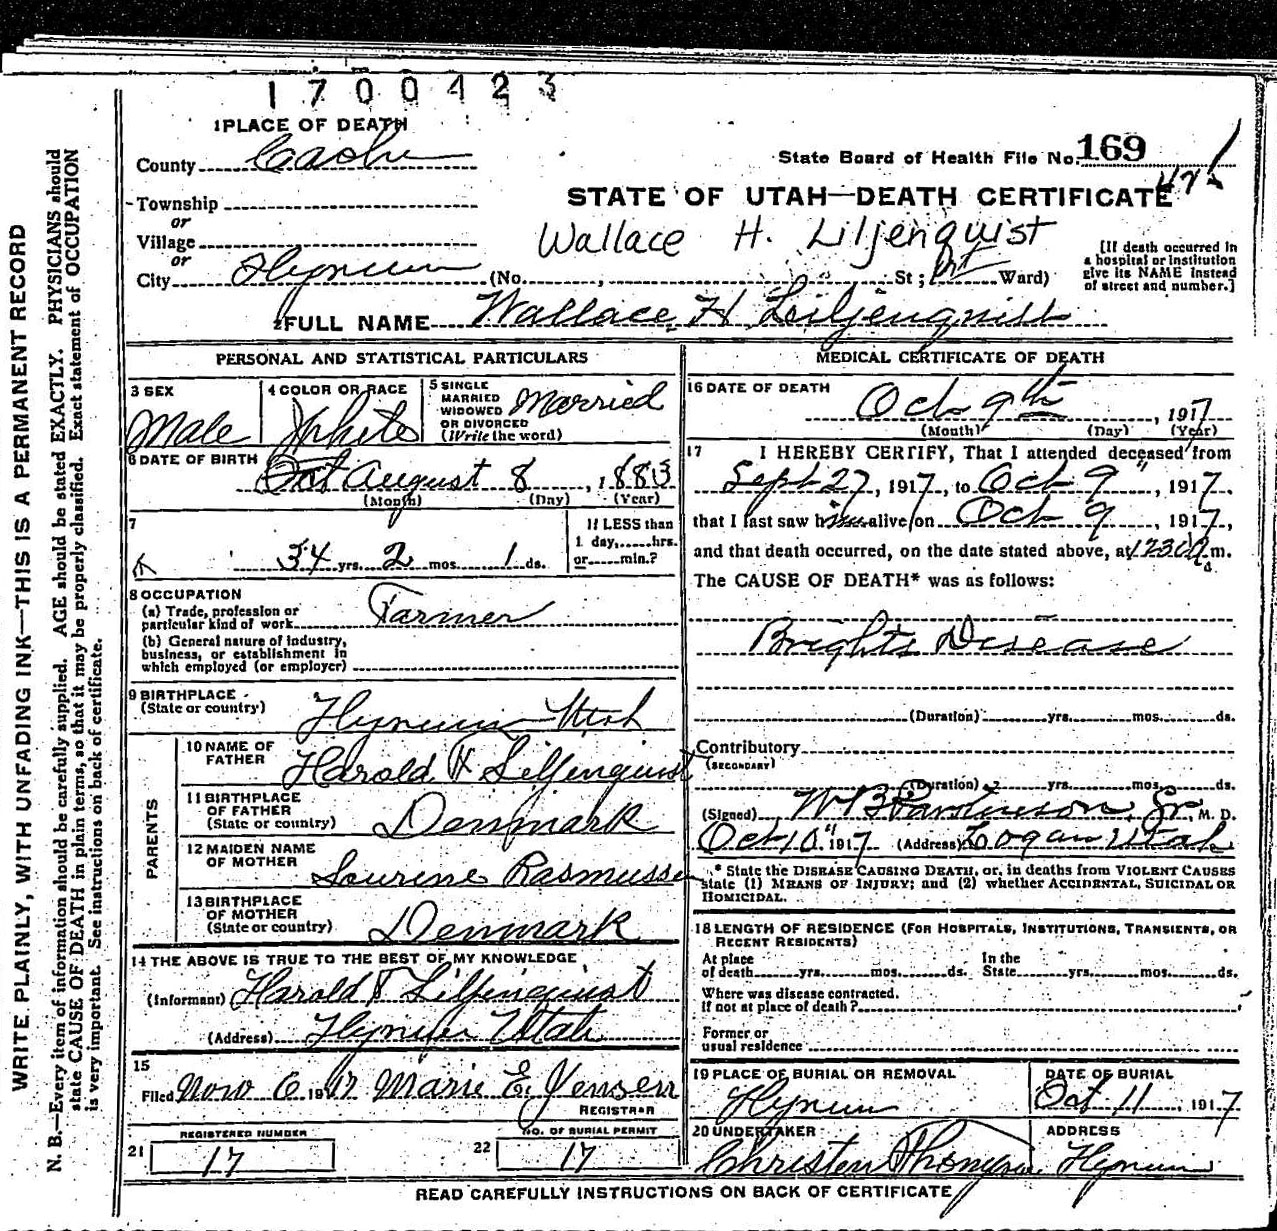 1700423
1 PLACE OF DEATH
County Cache
State Board of Health File No. 169
Township
or
Village
or
City Hyrum (No. , St ; Ward)
STATE OF UTAH—DEATH CERTIFICATE
Wallace H. Liljenquist
[If death occurred in
a hospital or institution
give its NAME instead
of street and number.]
2 FULL NAME Wallace H Liljenquist
PERSONAL AND STATISTICAL PARTICULARS
3 SEX
Male
4 COLOR OR RACE
White
5 SINGLE
MARRIED
WIDOWED
OR DIVORCED
(Write the word)
Married
6 DATE OF BIRTH
August 8, 1883
(Month) (Day) (Year)
7
34 yrs. 2 mos. 1 ds.
If LESS than
1 day, hrs.
or min.?
8 OCCUPATION
(a) Trade, profession or
particular kind of work Farmer
(b) General nature of industry,
business, or establishment in
which employed (or employer)
9 BIRTHPLACE
(State or country) Hyrum Utah
PARENTS
10 NAME OF
FATHER Harold H Liljenquist
11 BIRTHPLACE
OF FATHER
(State or country) Denmark
12 MAIDEN NAME
OF MOTHER Laurine Rasmussen
13 BIRTHPLACE
OF MOTHER
(State or country) Denmark
14 THE ABOVE IS TRUE TO THE BEST OF MY KNOWLEDGE
(Informant) Harold Liljenquist
(Address) Hyrum Utah
15
Filed Nov 6 1917 Marie E. Jensen
REGISTRAR
REGISTERED NUMBER
21 17
NO. OF BURIAL PERMIT
22 17
MEDICAL CERTIFICATE OF DEATH
16 DATE OF DEATH
Oct 9th, 1917
(Month) (Day) (Year)
17 I HEREBY CERTIFY, That I attended deceased from
Sept 27, 1917, to Oct 9", 1917,
that I last saw him alive on Oct 9, 1917,
and that death occurred, on the date stated above, at 1230 a m.
The CAUSE OF DEATH* was as follows:
Brights Disease
(Duration) yrs. mos. ds.
Contributory
(SECONDARY)
(Duration) yrs. mos. ds.
(Signed) W B Parkinson, Sr, M. D.
Oct 10" 1917 (Address) Logan Utah
* State the DISEASE CAUSING DEATH, or, in deaths from VIOLENT CAUSES
state (1) MEANS OF INJURY; and (2) whether ACCIDENTAL, SUICIDAL OR
HOMICIDAL.
18 LENGTH OF RESIDENCE (FOR HOSPITALS, INSTITUTIONS, TRANSIENTS, OR
RECENT RESIDENTS)
At place
of death yrs. mos. ds.
In the
State yrs. mos. ds.
Where was disease contracted.
If not at place of death?
Former or
usual residence
19 PLACE OF BURIAL OR REMOVAL
Hyrum
DATE OF BURIAL
Oct 11, 1917
20 UNDERTAKER
Christen
ADDRESS
Hyrum
READ CAREFULLY INSTRUCTIONS ON BACK OF CERTIFICATE
WRITE PLAINLY, WITH UNFADING INK—THIS IS A PERMANENT RECORD
N. B.—Every item of information should be carefully supplied. AGE should be stated EXACTLY. PHYSICIANS should
state CAUSE OF DEATH in plain terms, so that it may be properly classified. Exact statement of OCCUPATION
is very important. See instructions on back of certificate.